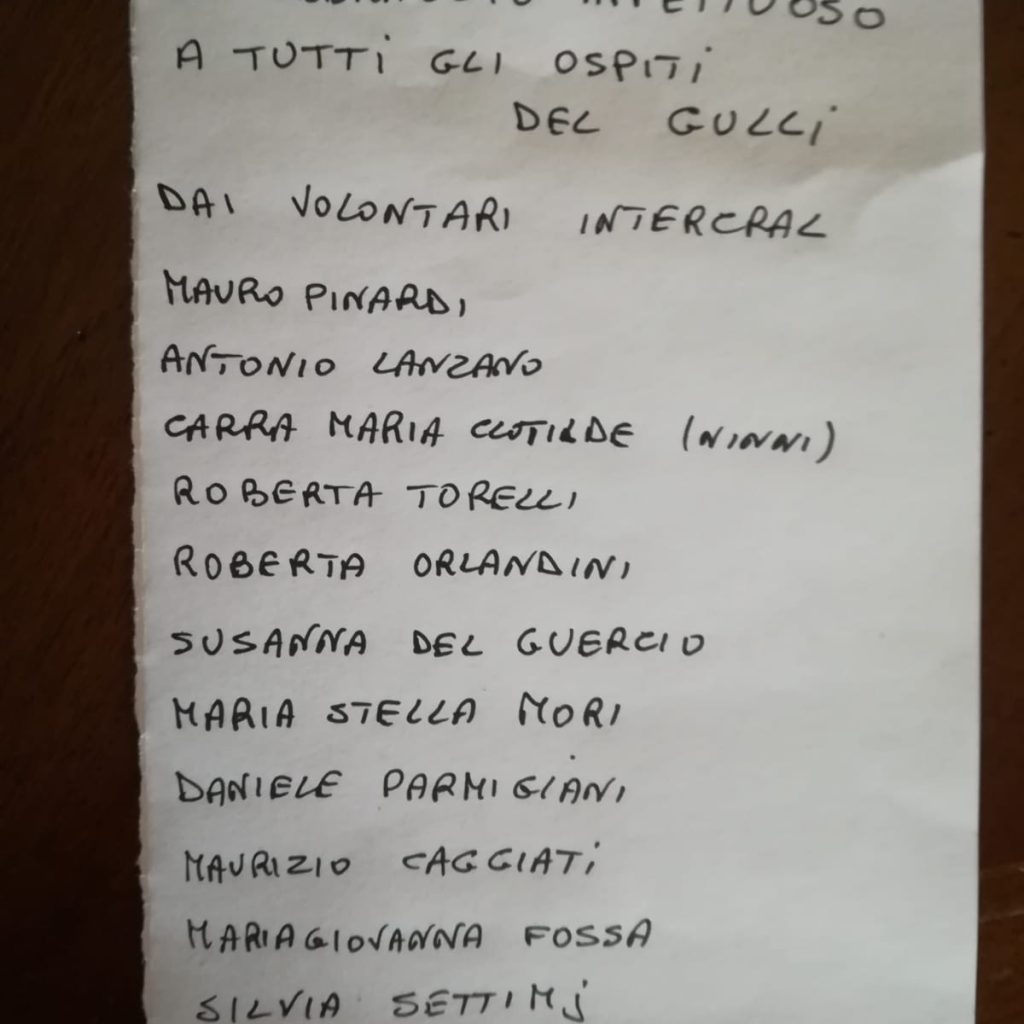 A TUTTI GLI OSPITI
DEL GULLI
DAI VOLONTARI INTERCRAL
MAURO PINARDI
ANTONIO LANZANO
CARRA MARIA CLOTILDE (NINNI)
ROBERTA TORELLI
ROBERTA ORLANDINI
SUSANNA DEL GUERCIO
MARIA STELLA MORI
DANIELE PARMIGIANI
MAURIZIO CAGGIATI
MARIAGIOVANNA FOSSA
SILVIA SETTIMj